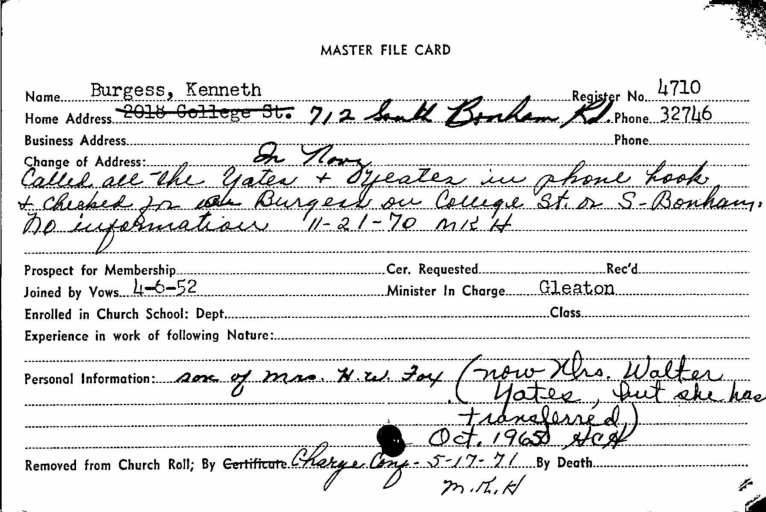 MASTER FILE CARD
Name Burgess, Kenneth Register No. 4710
Home Address 2018 College St. 712 South Bonham Rd. Phone 32746
Business Address Phone
Change of Address: In Navy
Called all the Yates + Yeates in phone book
& checked for Burgess on College St. or S-Bonham.
No information 11-21-70 MKH
Prospect for Membership Cer. Requested Rec'd
Joined by Vows 4-6-52 Minister In Charge Gleaton
Enrolled in Church School: Dept. Class
Experience in work of following Nature:
Personal Information: son of Mrs. H.W. Fox (now Mrs. Walter
Yates, but she has
transferred.)
Oct. 1965 HCH
Removed from Church Roll; By Certificate Charge Conf - 5-17-71 By Death
M.K.H